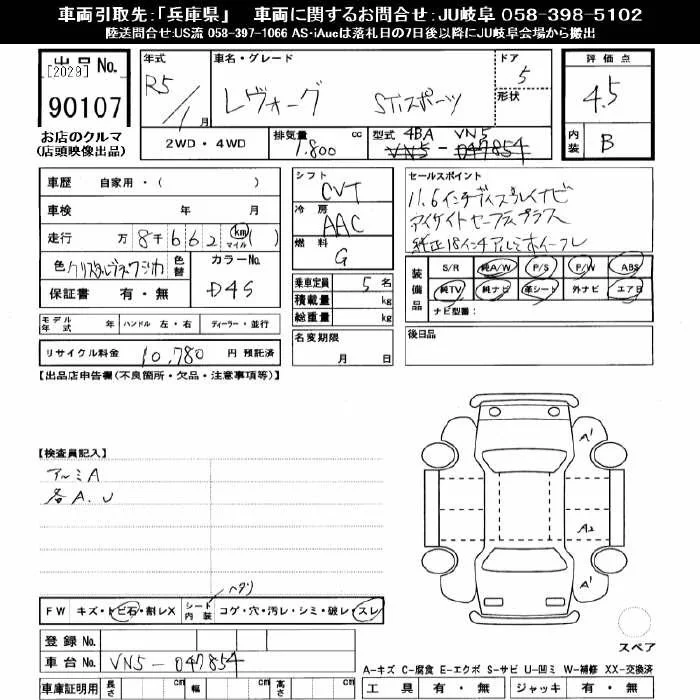 車両引取先:「兵庫県」 車両に関するお問合せ:JU岐阜 058-398-5102
陸送問合せ:US流 058-397-1066 AS-iAucは落札日の7日後以降にJU岐阜会場から搬出
出品No.
[2029]
90107
お店のクルマ
(店頭映像出品)
年式 R5/1月
車名・グレード
レヴォーグ STIスポーツ
ドア 5
形状
評価点
4.5
内装 B
2WD・4WD
排気量 1.800 cc
型式 4BA VN5
VN5-047854
車歴 自家用・( )
車検 年 月
走行 万 8千662 km マイル ( )
色 クリスタルブラックシリカ 色替
カラーNo. D4S
保証書 有・無
シフト CVT
冷房 AAC
燃料 G
乗車定員 5名
積載量 kg
総重量 kg
セールスポイント
11.6インチディスプレイナビ
アイサイトセーフティプラス
純正18インチアルミホイール
装備品
S/R 純A/W P/S P/W ABS
純TV 純ナビ 革シート 外ナビ エアB
ナビ型番:
モデル年式 年 ハンドル 左・右 ディーラー・並行
リサイクル料金 10,780 円 預託済
名変期限
月 日
後日品
【出品店申告欄(不良箇所・欠品・注意事項等)】
【検査員記入】
アルミA
各A.U
A'
A2
A'
ヘタリ
FW キズ・トビ石・割レX シート内装 コゲ・穴・汚レ・シミ・破レ・スレ
登録No.
車台No. VN5-047854
車庫証明用 長さ cm 幅 cm 高さ cm
スペア
A-キズ C-腐食 E-エクボ S-サビ U-凹ミ W-補修 XX-交換済
工具 有・無 ジャッキ 有・無